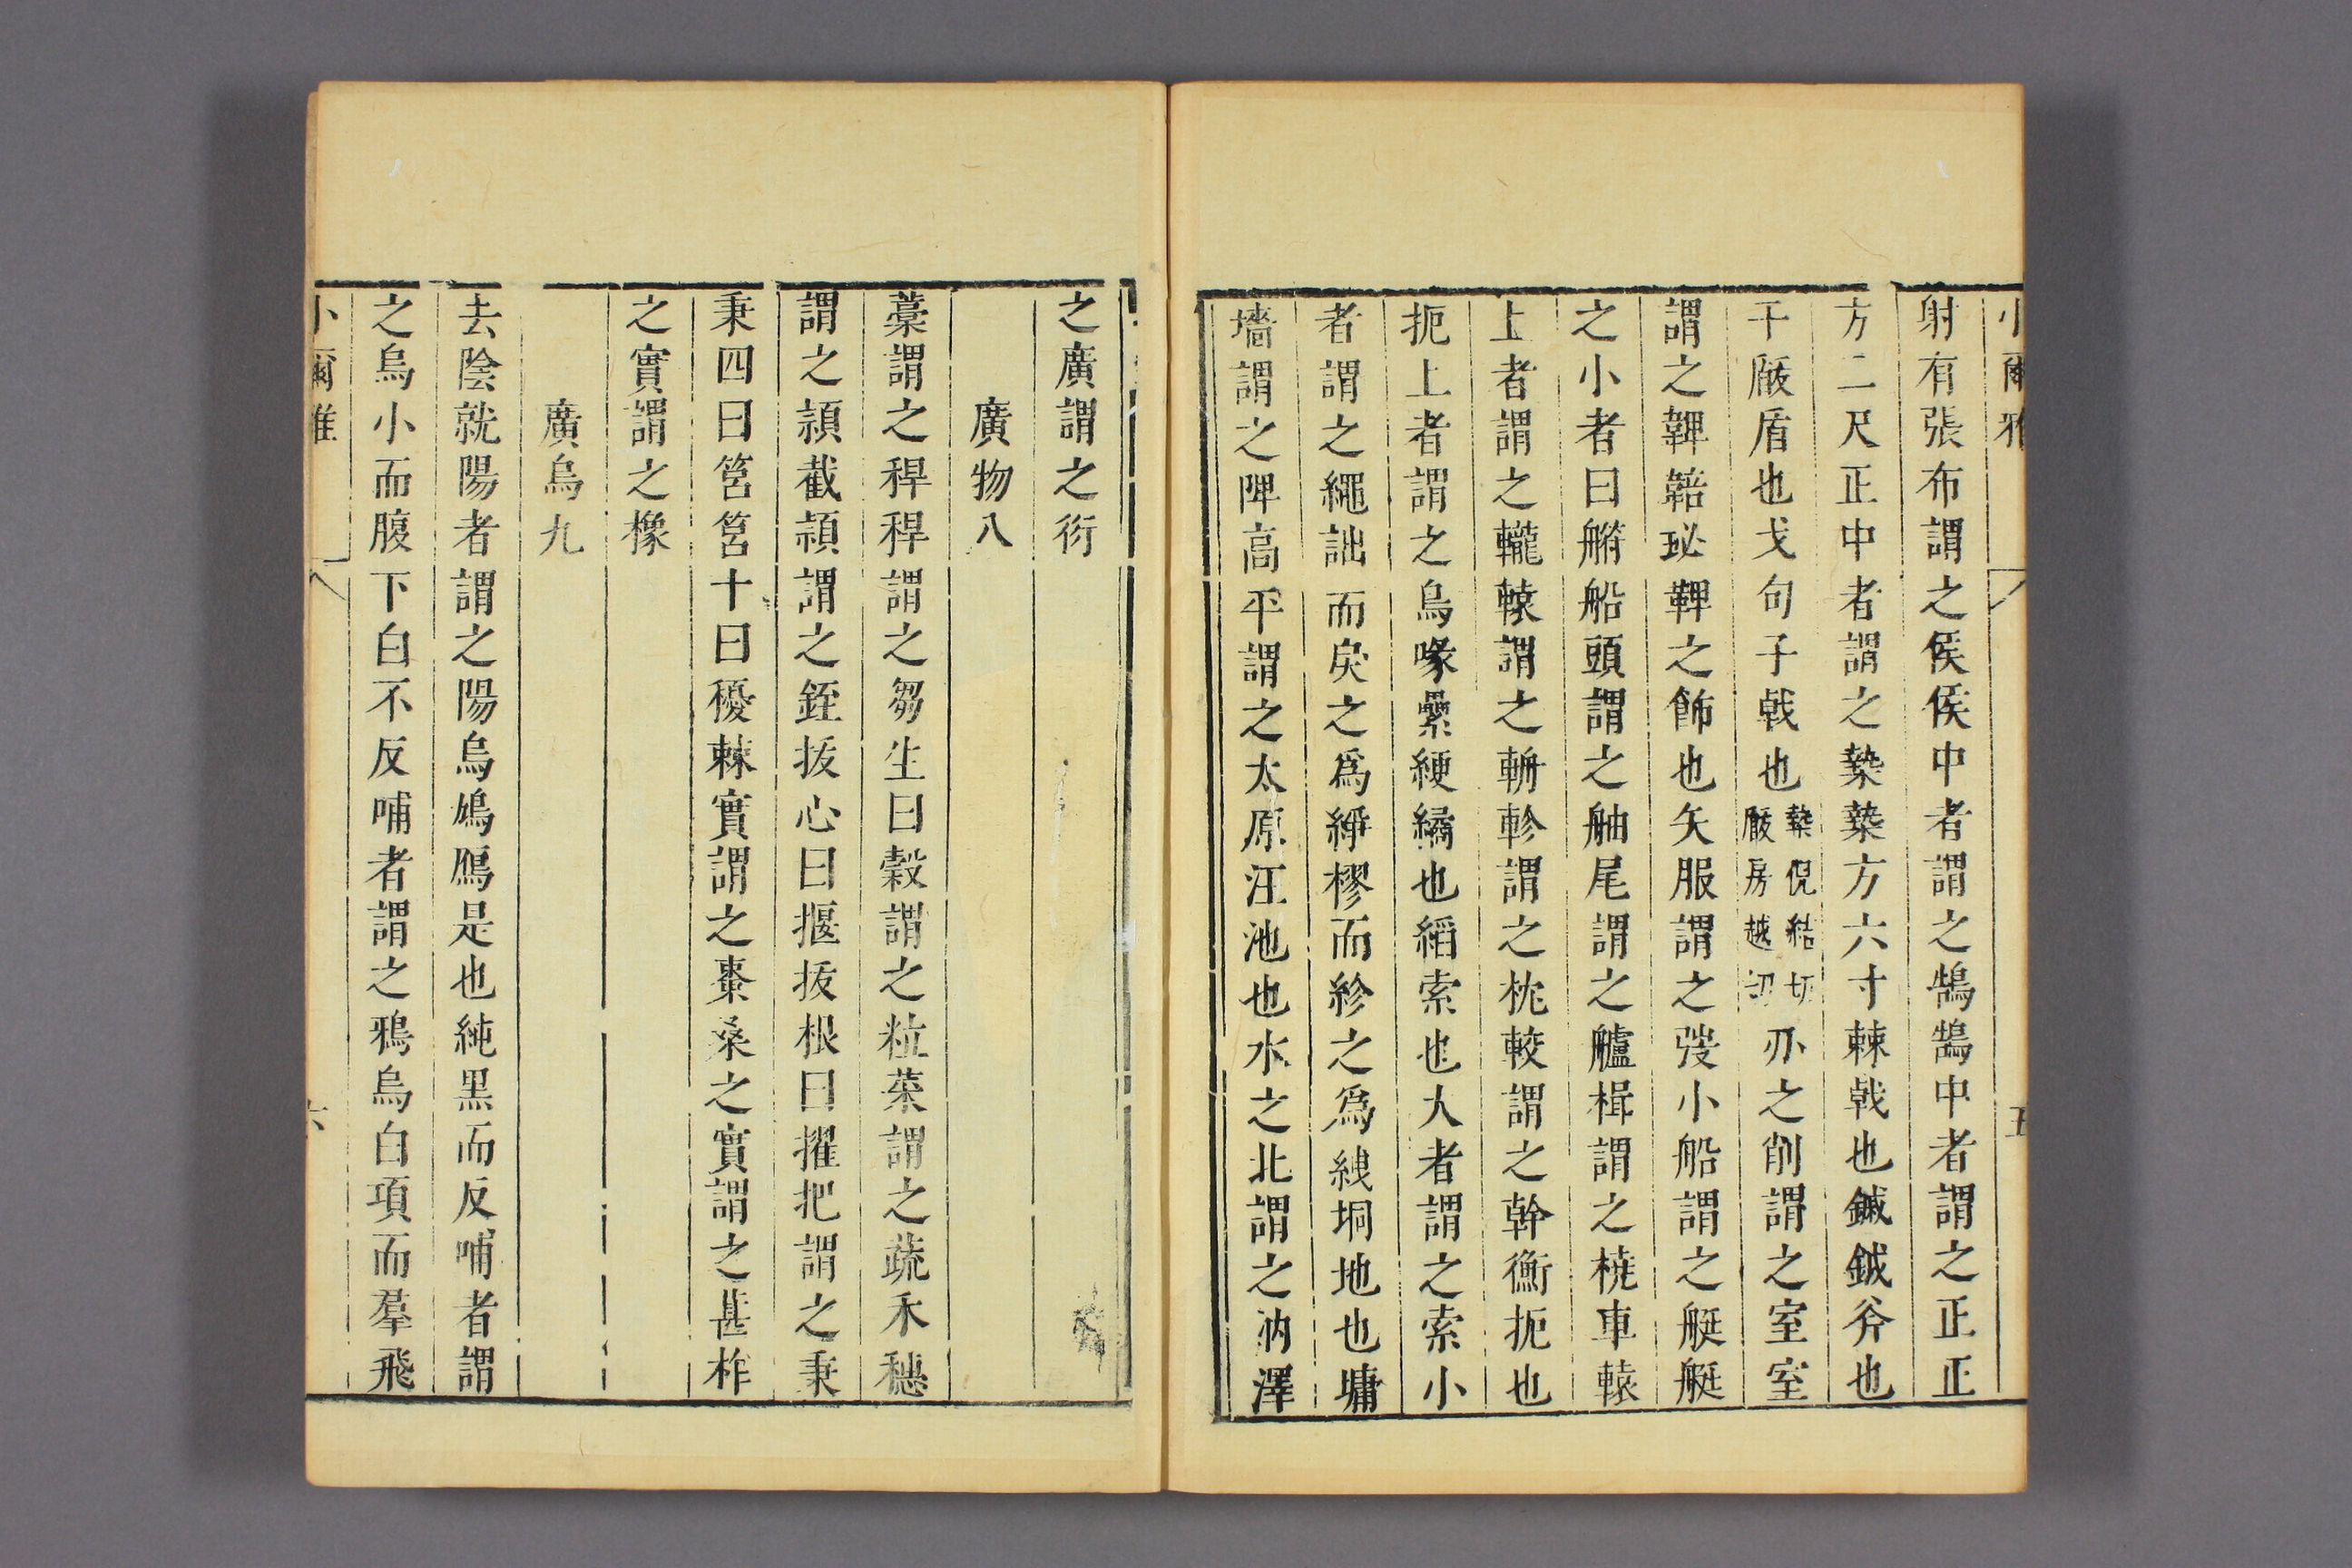 小爾雅
五
射有張布謂之侯侯中者謂之鵠鵠中者謂之正正
方二尺正中者謂之槷槷方六寸棘戟也鏚鉞斧也
干瞂盾也戈句子戟也槷倪結切瞂房越切刃之削謂之室室
謂之鞞韐珌鞞之飾也矢服謂之弢小船謂之艇艇
之小者曰艄船頭謂之舳尾謂之艫楫謂之橈車轅
上者謂之轆轅謂之輈軫謂之枕較謂之幹衡扼也
扼上者謂之烏啄纍綆繘也縚索也大者謂之索小
者謂之繩詘而戾之爲綪樛而紾之爲綫坰地也墉
墻謂之陴高平謂之太原汪池也水之北謂之汭澤
之廣謂之衍
廣物八
藁謂之稈稈謂之芻生曰穀謂之粒菜謂之蔬禾穗
謂之頴截頴謂之銍拔心曰揠拔根曰擢把謂之秉
秉四曰筥筥十曰稯棘實謂之棗桑之實謂之葚柞
之實謂之橡
廣鳥九
去陰就陽者謂之陽烏鳩鴈是也純黑而反哺者謂
之烏小而腹下白不反哺者謂之鴉烏白項而羣飛
小爾雅
六